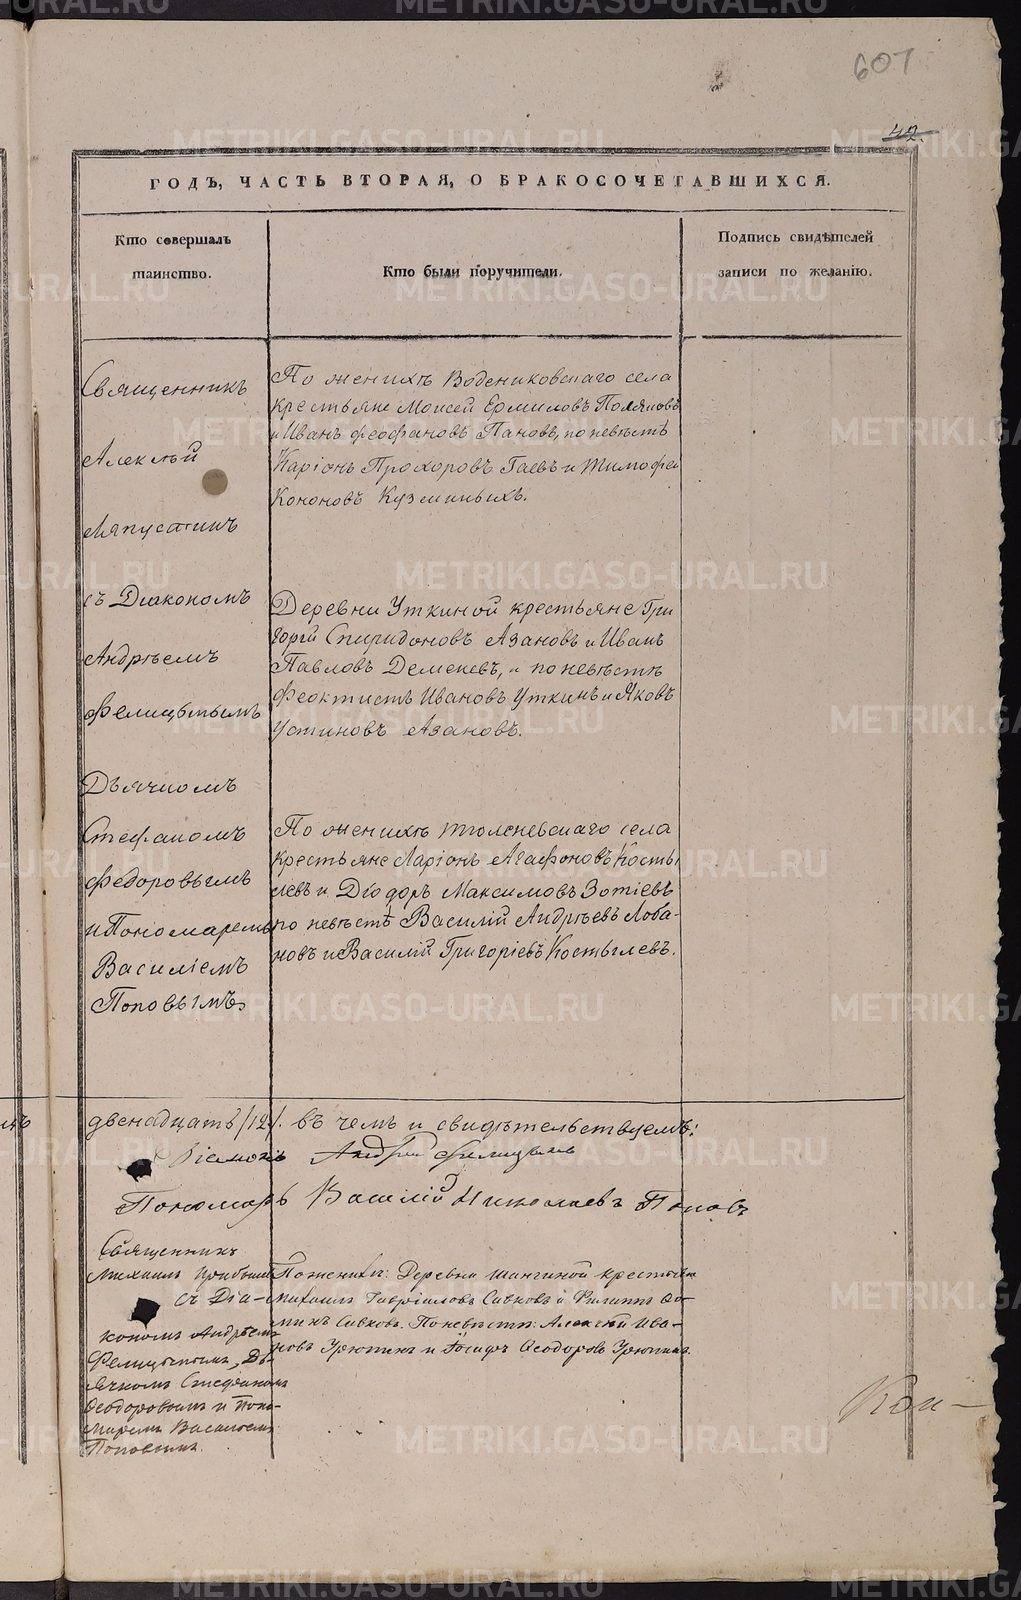 607
42.
ГОДЪ, ЧАСТЬ ВТОРАЯ, О БРАКОСОЧЕТАВШИХСЯ.
Кто совершалъ
таинство.
Кто были поручители.
Подпись свидѣтелей
записи по желанію.
Священникъ
Алексѣй
Ляпустинъ
съ Діакономъ
Андрѣемъ
Фелицынымъ
Дьячкомъ
Стефаномъ
Федоровымъ
и Пономаремъ
Василіемъ
Поповымъ
По женихѣ Водениковскаго села
крестьяне Моисей Ермиловъ Поляковъ
и Иванъ Феофановъ Пановъ, по невѣстѣ
Иаріонъ Прохоровъ Гаевъ и Тимофей
Кононовъ Кузминыхъ.
Деревни Уткиной крестьяне Гри
горій Спиридоновъ Азановъ и Иванъ
Павловъ Деменевъ, и по невѣстѣ
Феоктистъ Ивановъ Уткинъ и Яковъ
Устиновъ Азановъ.
По женихѣ
села
крестьяне Ларіонъ Агафоновъ Косты
левъ и Діодоръ Максимовъ Зотіевъ
по невѣстѣ Василій Андрѣевъ Лоба-
новъ и Василій Григоріевъ Костылевъ.
двенадцать /12/. въ чемъ и свидѣтельствуемъ:
Діаконъ Андрей Фелицынъ
Пономарь Василій Николаевъ Поповъ
Священникъ
Михаилъ
съ Діа-
кономъ Андрѣемъ
Фелицынымъ, Дь-
ячкомъ Стефаномъ
Ѳеодоровымъ и Поно-
маремъ Василіемъ
Поповымъ.
По женихѣ: Деревни Шангиной крестьяне
Михаилъ Гавріиловъ Савковъ и Филиппъ Ѳо-
минъ Савковъ. По невѣстѣ: Алексѣй Ива-
новъ Урютинъ и Іосифъ Ѳеодоровъ Урютинъ.
Кон-
METRIKI.GASO-URAL.RU